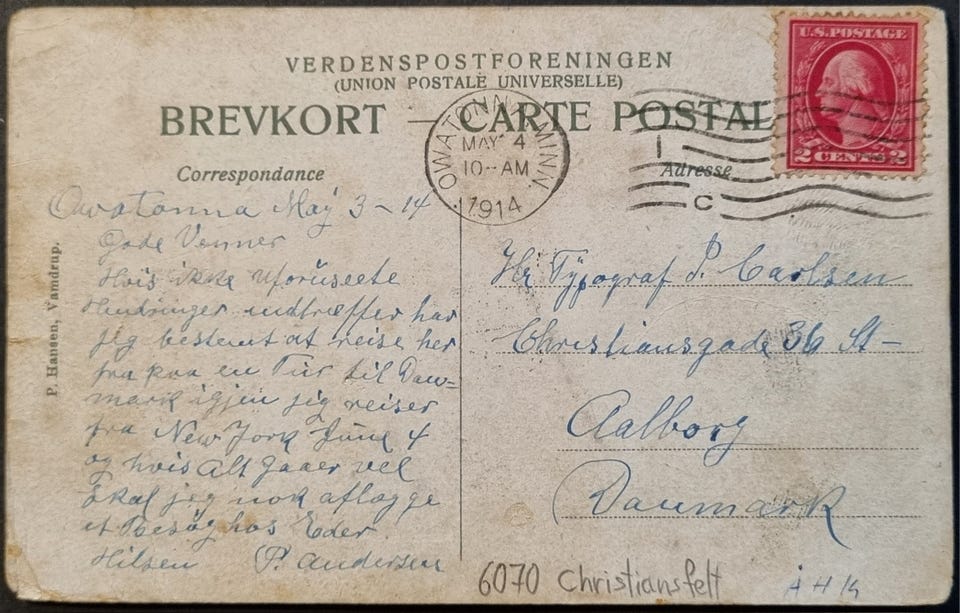 VERDENSPOSTFORENINGEN
(UNION POSTALE UNIVERSELLE)
BREVKORT — CARTE POSTALE
U.S. POSTAGE
2 CENTS 2
OWATONNA, MINN.
MAY 4
10-AM
1914
C
Correspondance
Adresse
P. Hansen, Vamdrup.
Owatonna Maÿ 3-14
Gode Venner
Hvis ikke uforüseete
Hindringer indtræffer har
jeg bestemt at reise her
fra paa en Tür til Dan=
mark igjen jeg reiser
fra New York June 4
og hvis Alt gaaer vel
Skal jeg nok aflægge
et Besøg hos Eder
Hilsen P. Andersen
Hr Typograf P. Carlsen
Christiansgade 36 St-
Aalborg
Danmark
6070 Christiansfelt